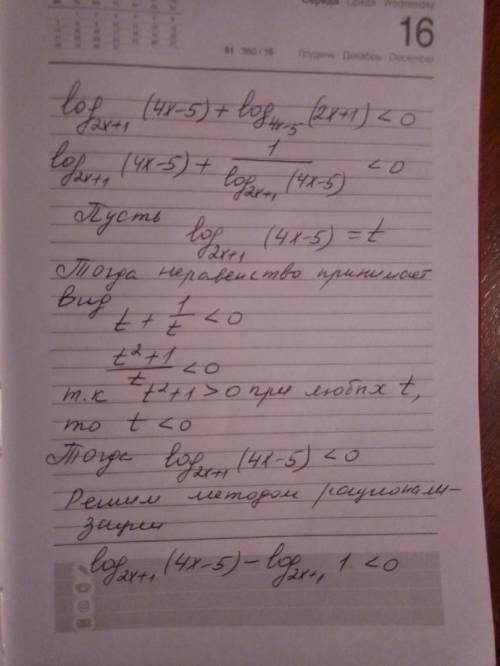 Середа Среда Wednesday
16
51 350 / 16
Грудень Декабрь December
log_{2x+1} (4x-5) + log_{4x-5} (2x+1) < 0
log_{2x+1} (4x-5) + \frac{1}{log_{2x+1} (4x-5)} < 0
Пусть
log_{2x+1} (4x-5) = t
Тогда неравенство принимает
вид
t + \frac{1}{t} < 0
\frac{t^2+1}{t} < 0
т.к t^2+1 > 0 при любых t,
то t < 0
Тогда log_{2x+1} (4x-5) < 0
Решим методом рационали-
зации
log_{2x+1} (4x-5) - log_{2x+1} 1 < 0